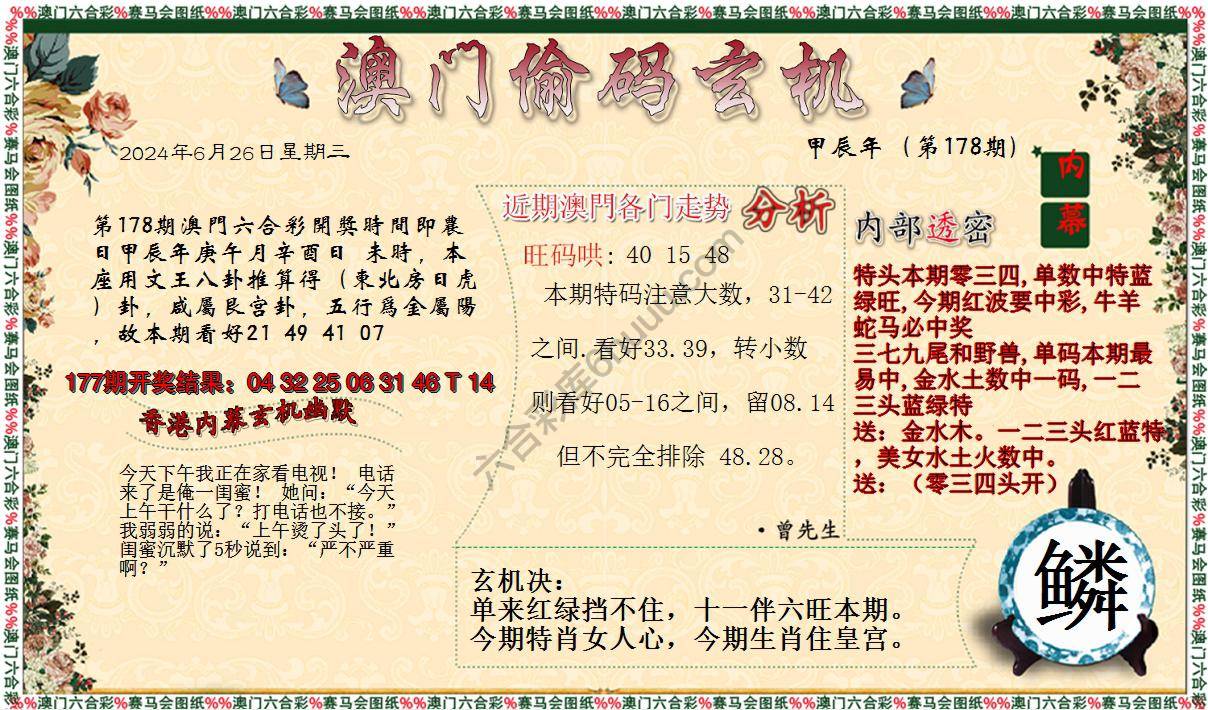 %%澳门六合彩%赛马会图纸%%澳门六合彩%赛马会图纸%%澳门六合彩%赛马会图纸%%澳门六合彩%赛马会图纸%%澳门六合彩%赛马会图纸%%澳门六合彩%赛马会图纸%%
澳门偷码玄机
2024年6月26日星期三
甲辰年（第178期）
内幕
第178期澳門六合彩開獎時間即農
日甲辰年庚午月辛酉日 未時，本
座用文王八卦推算得（東北房日虎
）卦，咸屬艮宫卦，五行爲金屬陽
，故本期看好21 49 41 07
177期开奖结果：04 32 25 06 31 46 T 14
香港内幕玄机幽默
今天下午我正在家看电视！ 电话
来了是俺一闺蜜！ 她问：“今天
上午干什么了？打电话也不接。”
我弱弱的说：“上午烫了头了！”
闺蜜沉默了5秒说到：“严不严重
啊？”
近期澳門各门走势 分析
旺码哄: 40 15 48
本期特码注意大数，31-42
之间.看好33.39，转小数
则看好05-16之间，留08.14
但不完全排除 48.28。
·曾先生
内部透密
特头本期零三四,单数中特蓝
绿旺,今期红波要中彩,牛羊
蛇马必中奖
三七九尾和野兽,单码本期最
易中,金水土数中一码,一二
三头蓝绿特
送：金水木。一二三头红蓝特
，美女水土火数中。
送：（零三四头开）
玄机决：
单来红绿挡不住，十一伴六旺本期。
今期特肖女人心，今期生肖住皇宫。
鳞
%%澳门六合彩%赛马会图纸%%澳门六合彩%赛马会图纸%%澳门六合彩%赛马会图纸%%澳门六合彩%赛马会图纸%%澳门六合彩%赛马会图纸%%澳门六合彩%赛马会图纸%%